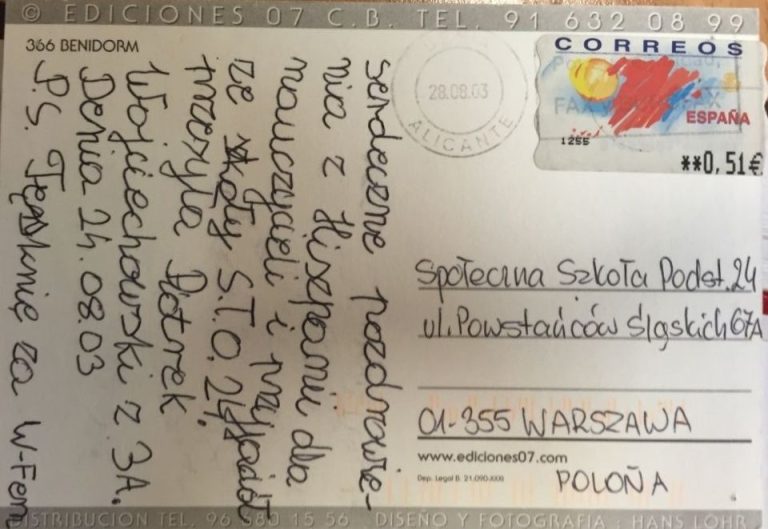 © EDICIONES 07 C.B. TEL. 91 632 08 99
366 BENIDORM
serdeczne pozdrowie-
nia z Hiszpanii dla
nauczycieli i
ze szkoły S.T.O. 24
przesyła Piotrek
Wojciechowski z 3A.
Denia 24.08.03
P.S. Tęsknię za W-Fem
28.08.03
ALICANTE
CORREOS
ESPAÑA
1255
**0,51€
Społeczna Szkoła Podst. 24
ul. Powstańców Śląskich 67A
01-355 WARSZAWA
www.ediciones07.com
Dep. Legal B. 21.090-XXIII
POLOÑA
DISTRIBUCION TEL. 96 680 15 56 . DISEÑO Y FOTOGRAFIA . HANS LÖHR